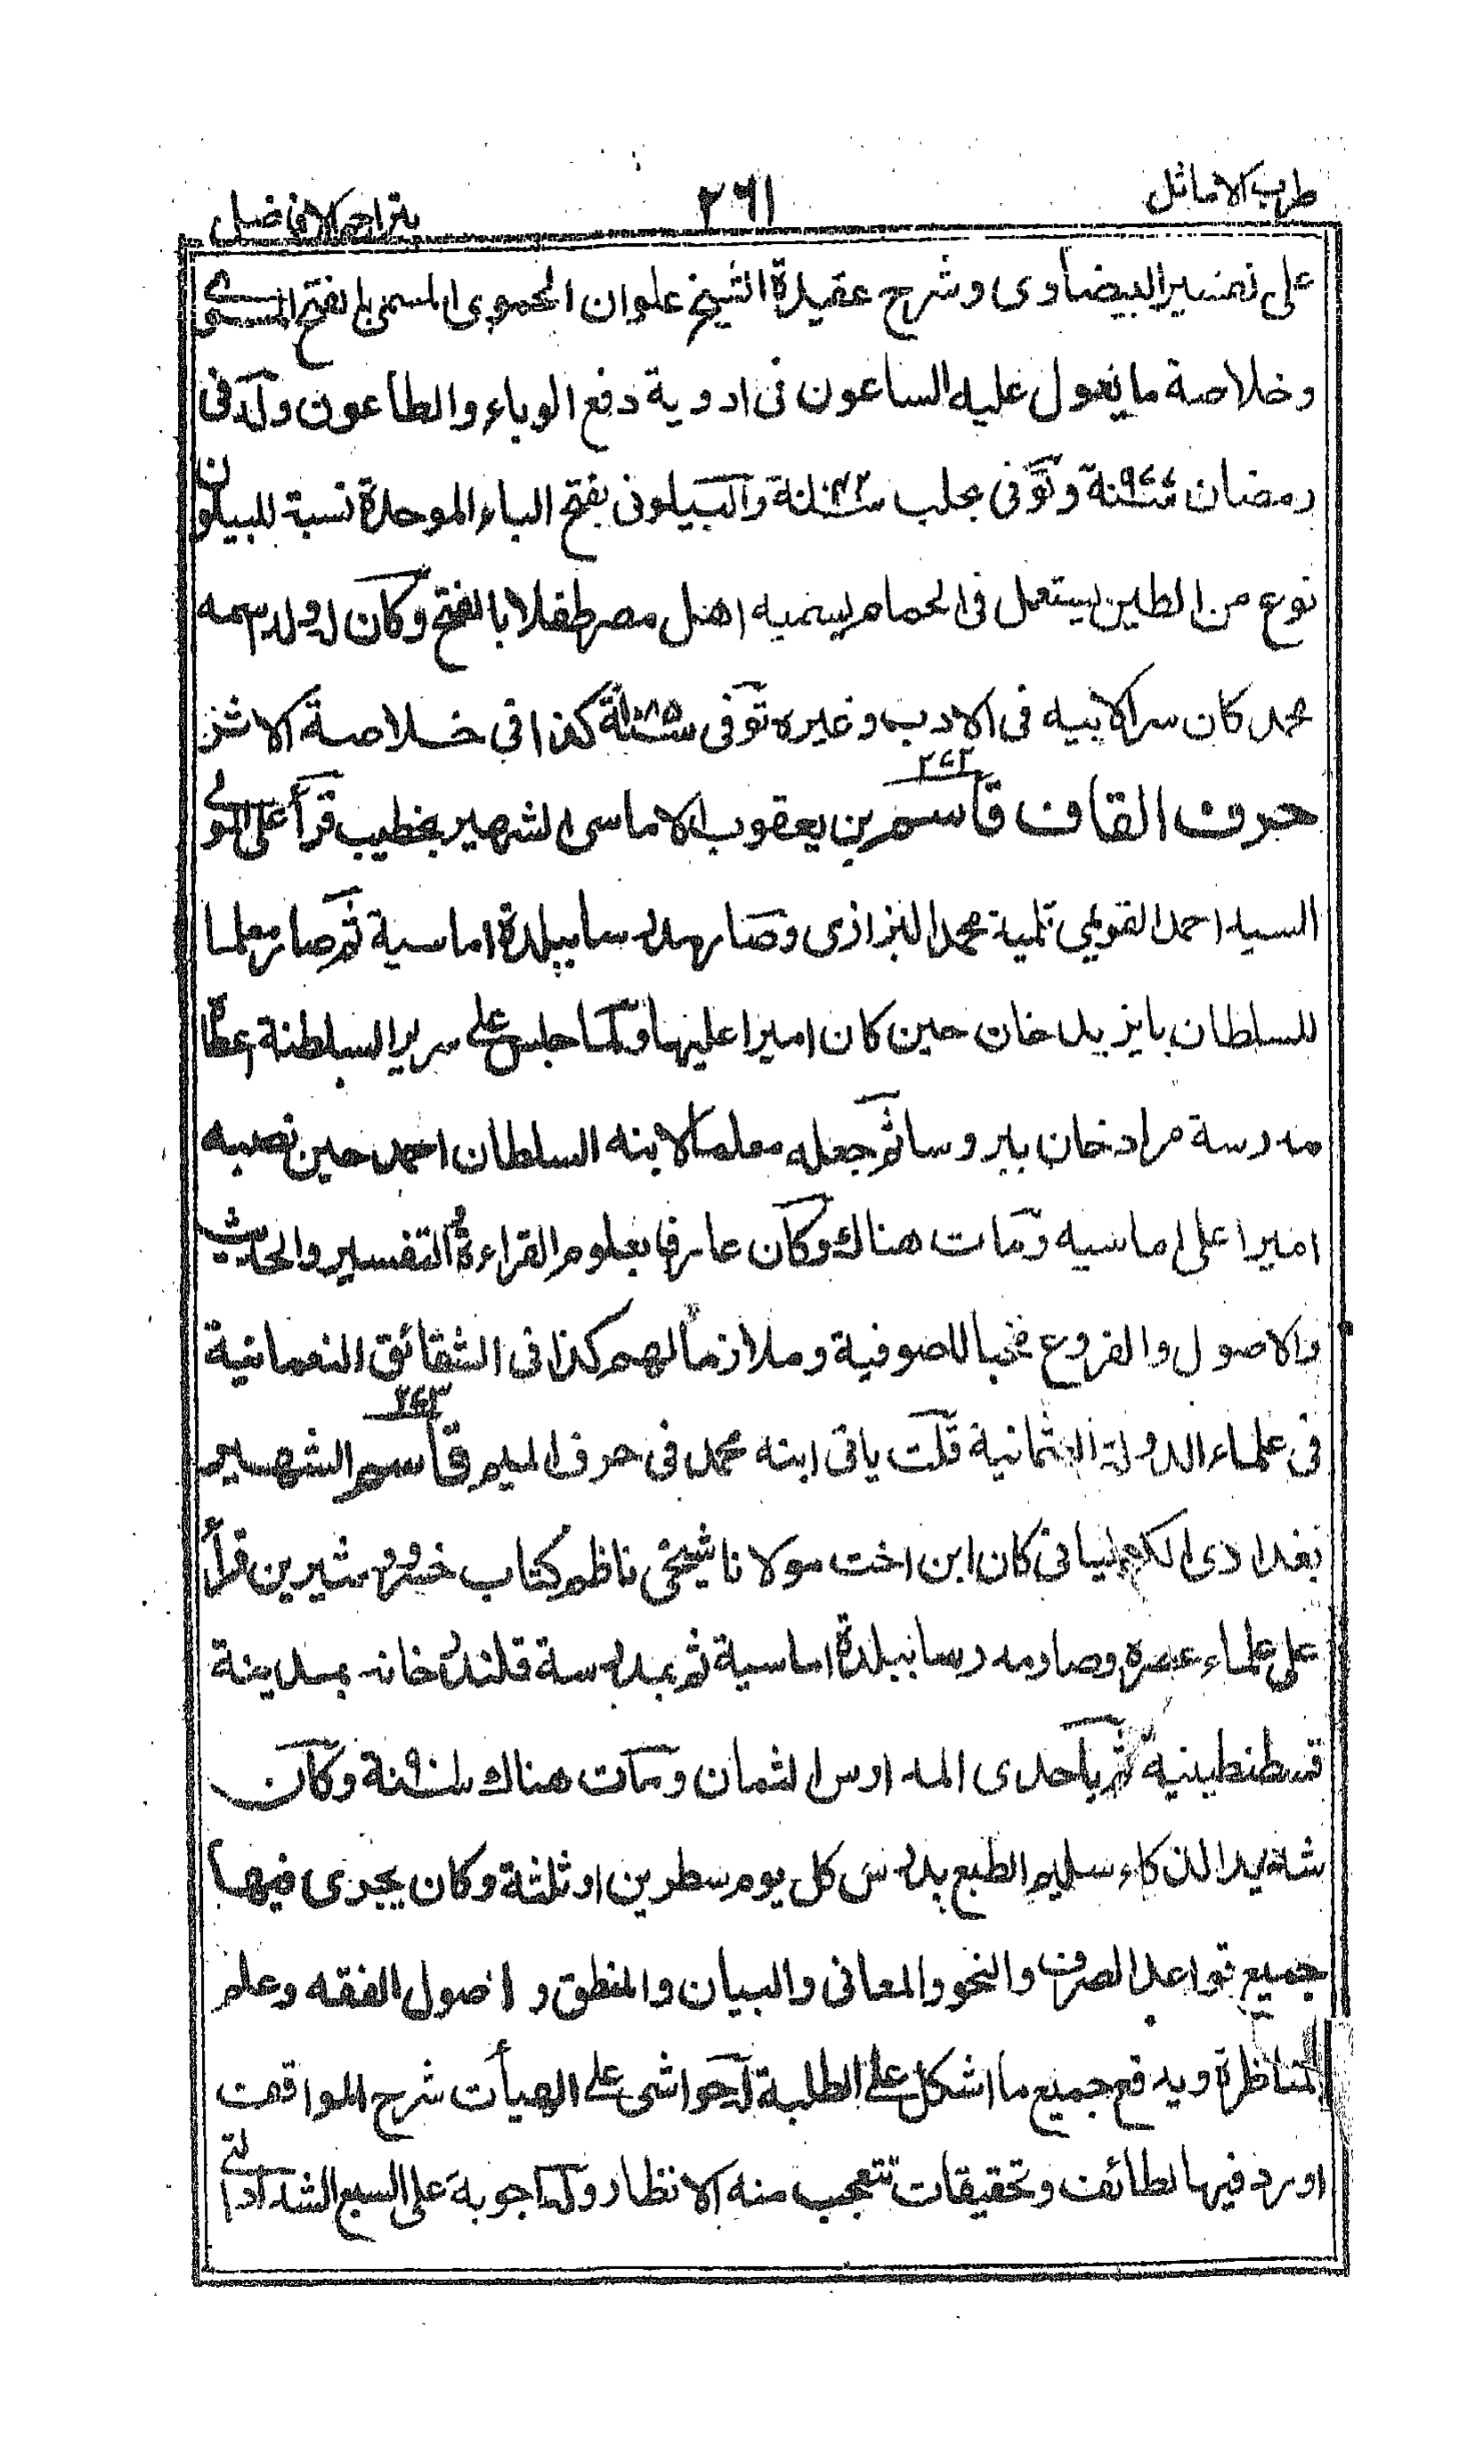 طرب الاماثل
٢٦١
بتراجم الافاضل
على تفسير البيضاوى وشرح عقيدة الشيخ علوان الحموى المسمى بالفتح
وخلاصة ما يعول عليه الساعون فى ادوية دفع الوباء والطاعون ولد فى
رمضان ٩٤٤ سنة وتوفى بحلب سنة والبيلونى بفتح الباء الموحدة نسبة للبيلون
نوع من الطين يستعمل فى الحمام يسميه اهل مصر طفلا بالفتح وكان له ولد اسمه
محمد كان سر الابيه فى الادب وغيره توفى ١٠٨٥ سنة كذا فى خلاصة الاثر
٢٤٢
حرف القاف قاسم بن يعقوب الاماسى الشهير بخطيب قرأ على المولى
السيد احمد القريمى تلميذ محمد البزازى وصار مدرسا ببلدة اماسية ثم صار معلما
للسلطان بايزيد خان حين كان اميرا عليها ولما جلس على سرير السلطنة اعطاه
مدرسة مراد خان ببروسا ثم جعله معلما لابنه السلطان احمد حين نصبه
اميرا على اماسيه ومات هناك وكان عارفا بعلوم القراءة والتفسير والحديث
والاصول والفروع محبا للصوفية وملازما لهم كذا فى الشقائق النعمانية
٢٤٣
فى علماء الدولة العثمانية قلت ياتى ابنه محمد فى حرف الميم قاسم الشهير
بغدادى الكرميانى كان ابن اخت مولانا شيخى ناظم كتاب خسرو شيرين قرأ
على علماء عصره وصار مدرسا ببلدة اماسية ثم بمدرسة قلندرخانه بمدينة
قسطنطينية ثم باحدى المدارس الثمان ومات هناك سنة وكان
شديد الذكاء سليم الطبع يدرس كل يوم سطرين او ثلثة وكان يجرى فيها
جميع قواعد الصرف والنحو والمعانى والبيان والمنطق واصول الفقه وعلم
المناظرة ويدفع جميع ما اشكل على الطلبة له حواشى على الهيأت شرح المواقف
اورد فيها لطائف وتحقيقات تتعجب منه الانظار وله اجوبة على السبع الشداد التى